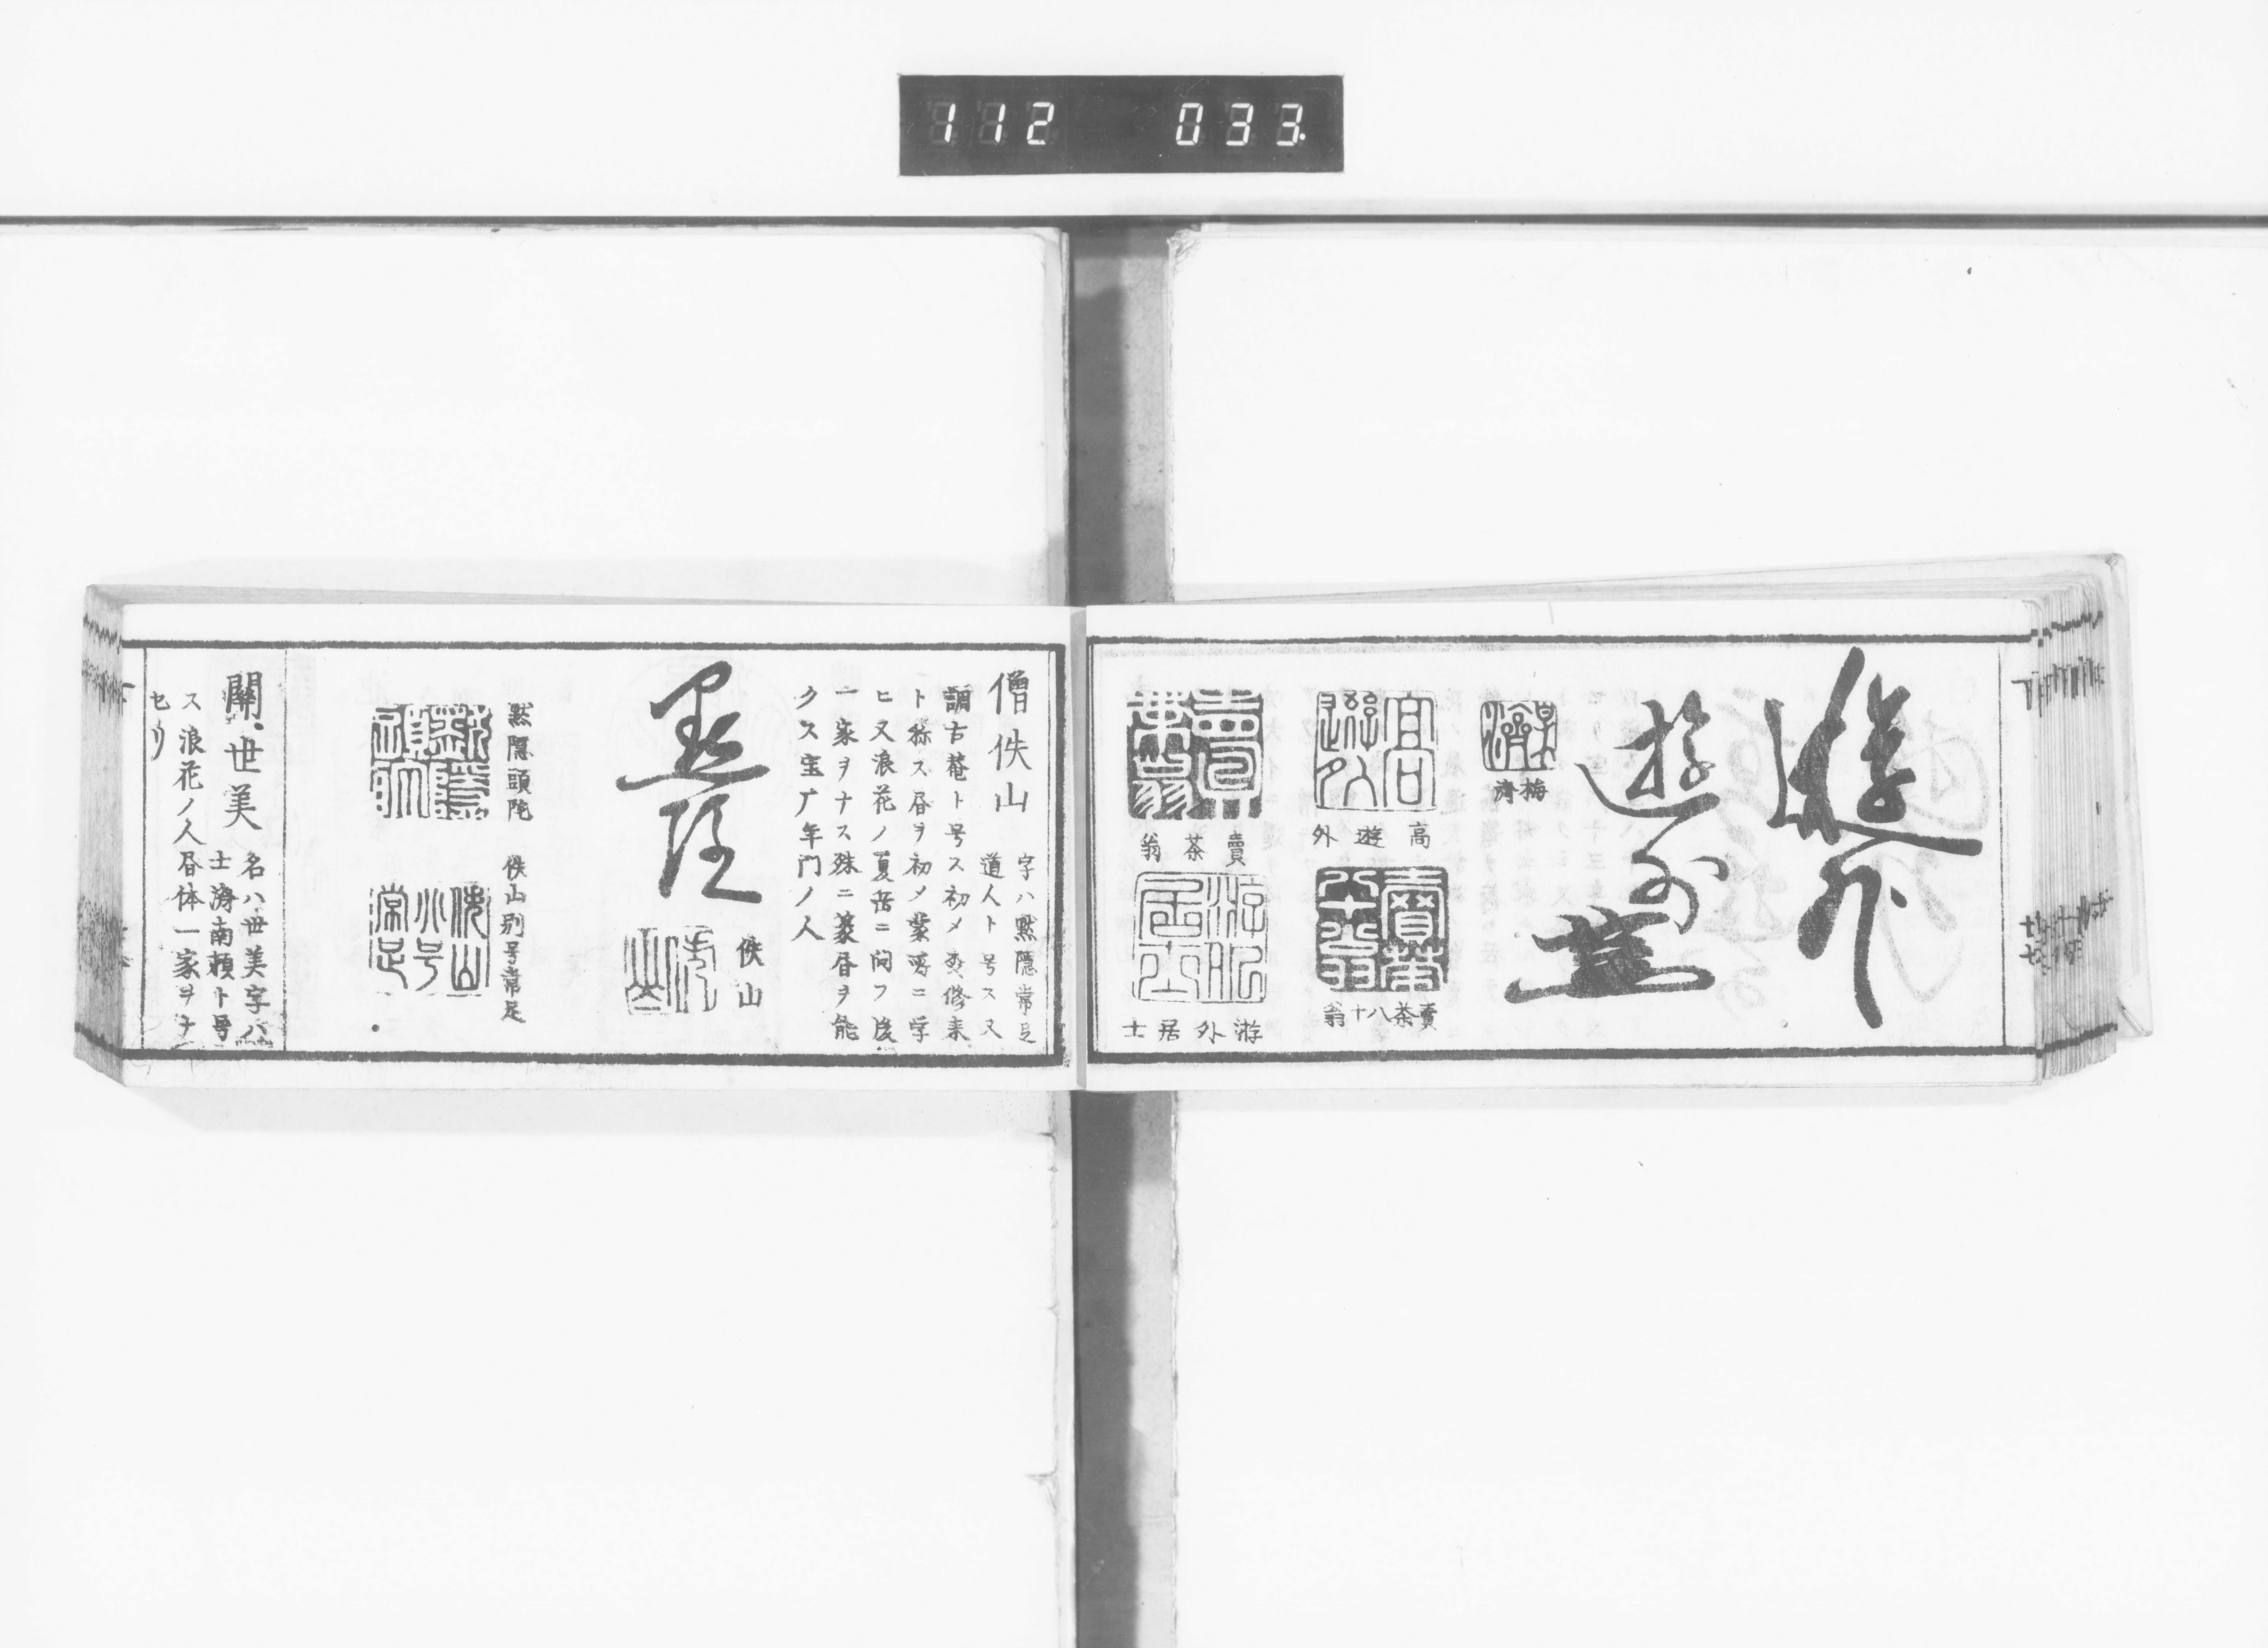 112 033
遊外
遊外
梅濟
高遊外
賣茶八十翁
賣茶翁
游外居士
僧佚山
字ハ黙隱常足
道人ト号ス又
調古菴ト号ス初メ
ト称ス昼ヲ初メ
ヒ又浪花ノ夏岳ニ問フ後
一家ヲナス殊ニ篆昼ヲ能
クス宝广年门ノ人
黙隱
佚山
黙隱頭陀
佚山別号常足
關世美
名ハ世美字ハ
士濟南瀬ト号
ス浪花ノ人昼体一家ヲナ
セリ